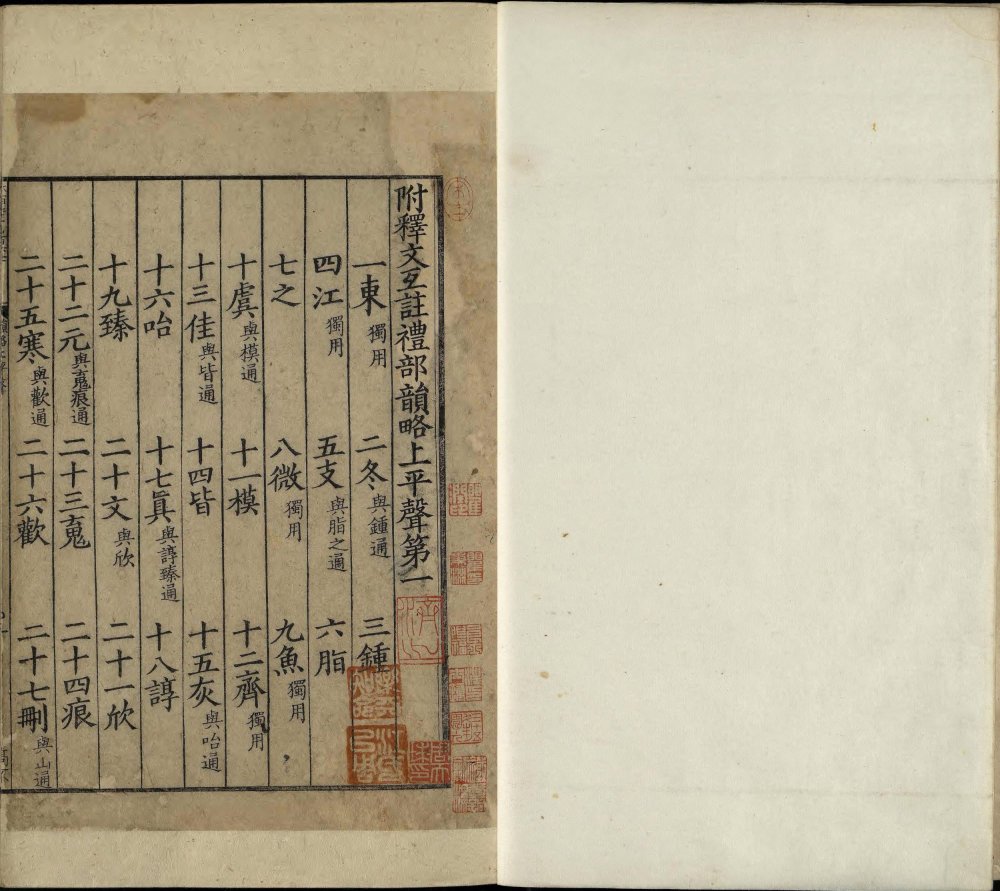 附釋文互註禮部韻略上平聲第一
一東獨用 二冬與鍾通 三鍾
四江獨用 五支與脂之通 六脂
七之 八微獨用 九魚獨用
十虞與模通 十一模 十二齊獨用
十三佳與皆通 十四皆 十五灰與咍通
十六咍 十七眞與諄臻通 十八諄
十九臻 二十文與欣 二十一欣
二十二元與䰟痕通 二十三䰟 二十四痕
二十五寒與歡通 二十六歡 二十七刪與山通